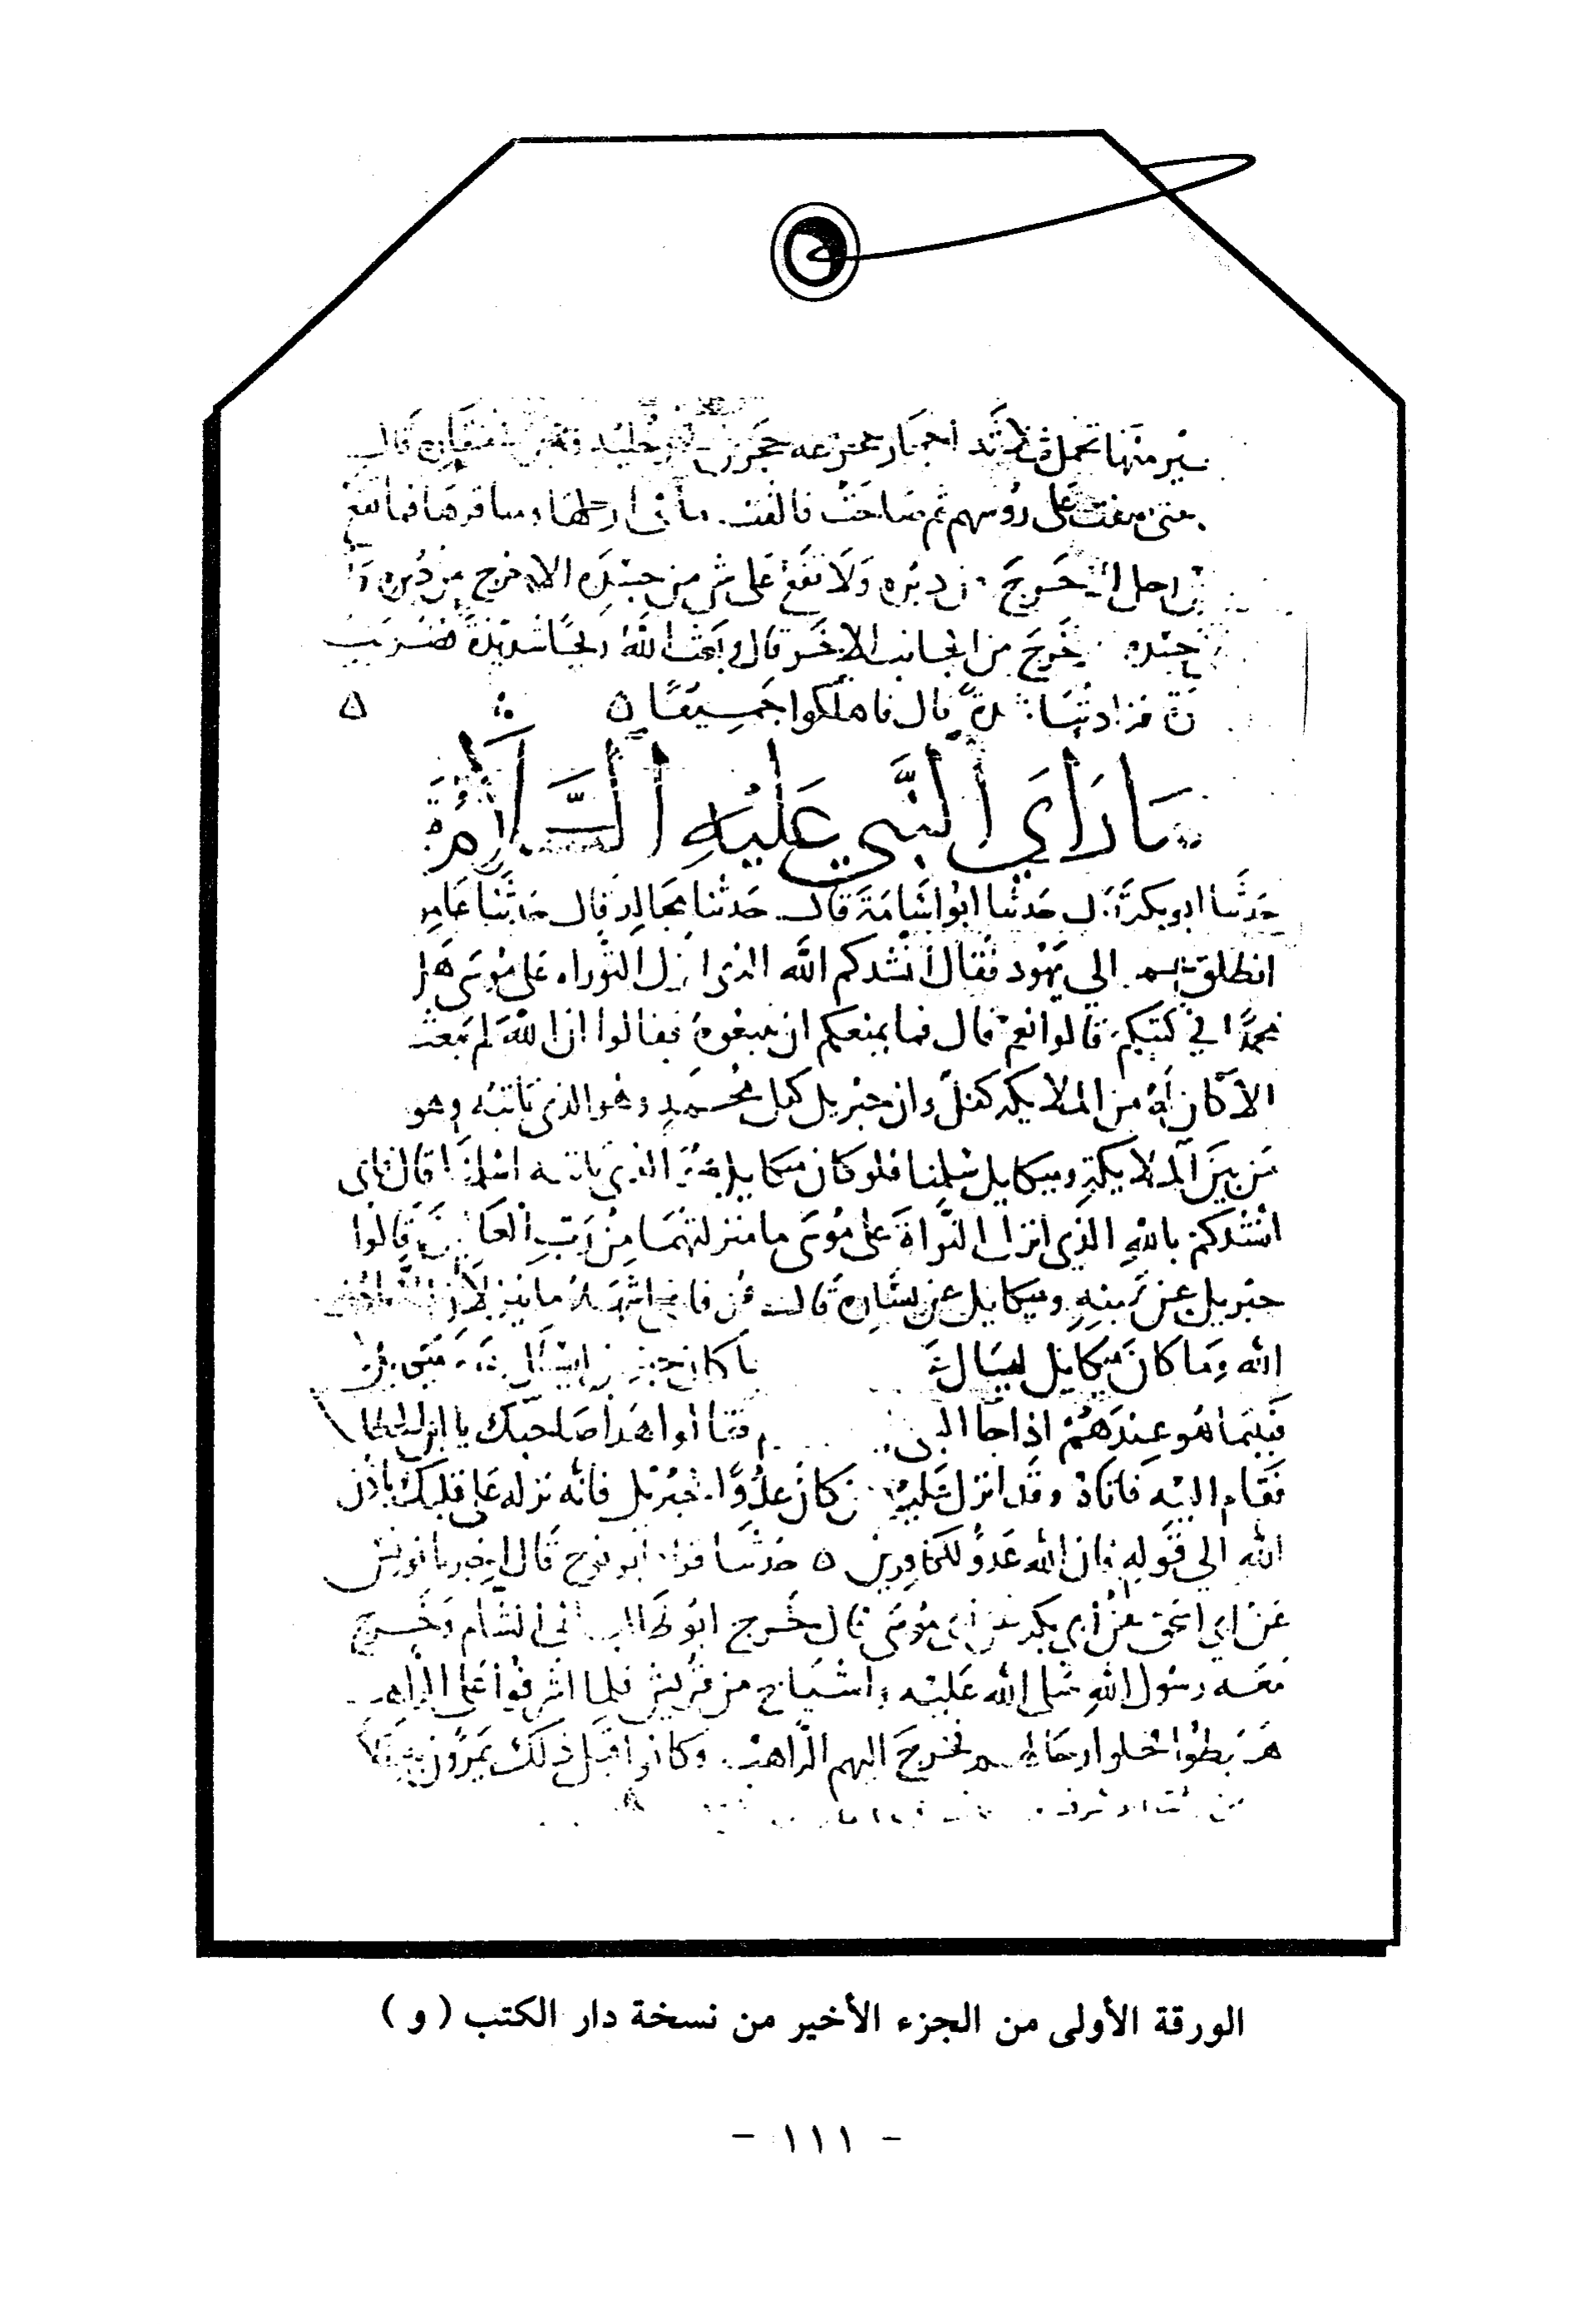 منها تحمل ثلاثة احجار
على رؤسهم ثم صاحت فالقت ما في ارجلها ومناقرها فما تقع
خرج من دبره ولا تقع على شي من جسده الا خرج من
خرج من الجانب الاخر قال وبعث الله ريحا شديدة فضربت
فزادتها شدة قال فاهلكوا جميعا ه
ما رَاَي النَّبي عَليْهِ السَّلام
حدثنا ابو بكر قال حدثنا ابو اسامة قال حدثنا مجالد قال حدثنا عامر
انطلق الي يهود فقال انشدكم الله الذي انزل التوراه على موسى هل
محمدا في كتبكم قالوا نعم قال فما يمنعكم ان تتبعوه فقالوا ان الله لم يبعث
الا كان له من الملايكة كفل وان جبريل كفل محمد وهو الذي ياتيه وهو
من بين الملايكة وميكايل سلمنا فلو كان ميكايل هو الذي ياتيه اسلمنا قال فاني
انشدكم بالله الذي انزل التوراة على موسى ما منزلتهما من رب العالمين قالوا
جبريل عن يمينه وميكايل عن يساره قال
الله وما كان ميكايل ليسالم
فبينما هو عندهم اذ جا النبي فقالوا هذا صاحبك يا ابن الخطاب
فقام اليه فاتاه وقد انزل عليه من كان عدوا لجبريل فانه نزله على قلبك باذن
الله الى قوله فان الله عدو للكافرين ه حدثنا قراد ابو نوح قال اخبرنا يونس
عن ابي اسحق عن ابي بكر عن ابي موسى قال خرج ابو طالب الى الشام وخرج
معه رسول الله صلى الله عليه واشياخ من قريش فلما اشرفوا على الراهب
هبطوا فحلوا رحالهم فخرج اليهم الراهب وكانوا قبل ذلك يمرون
الورقة الأولى من الجزء الأخير من نسخة دار الكتب ( و )
- ١١١ -